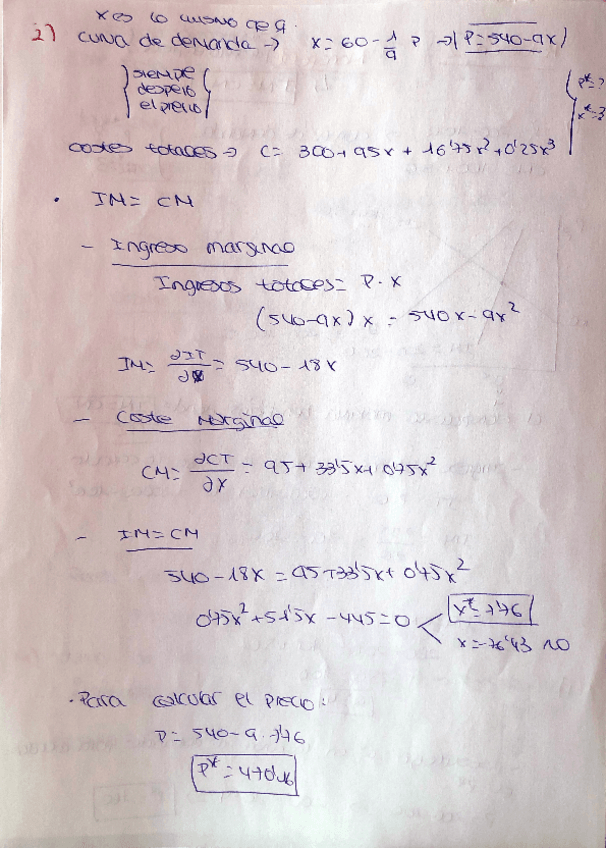 x es lo mismo que q.
2) curva de demanda → x = 60 - 1/9 P → P = 540 - 9x
siempre
despejo
el precio
P* = ?
x* = ?
costes totales → C = 300 + 95x + 16'75x² + 0'25x³
• IM = CM
- Ingreso marginal
Ingresos totales = P · x
(540 - 9x) x = 540x - 9x²
IM = ∂IT/∂x = 540 - 18x
- Coste Marginal
CM = ∂CT/∂x = 95 + 33'5x + 0'75x²
- IM = CM
540 - 18x = 95 + 33'5x + 0'75x²
0'75x² + 51'5x - 445 = 0
x* = 7'76
x = -76'43 NO
• Para calcular el precio:
P = 540 - 9 · 7'76
P* = 470'16